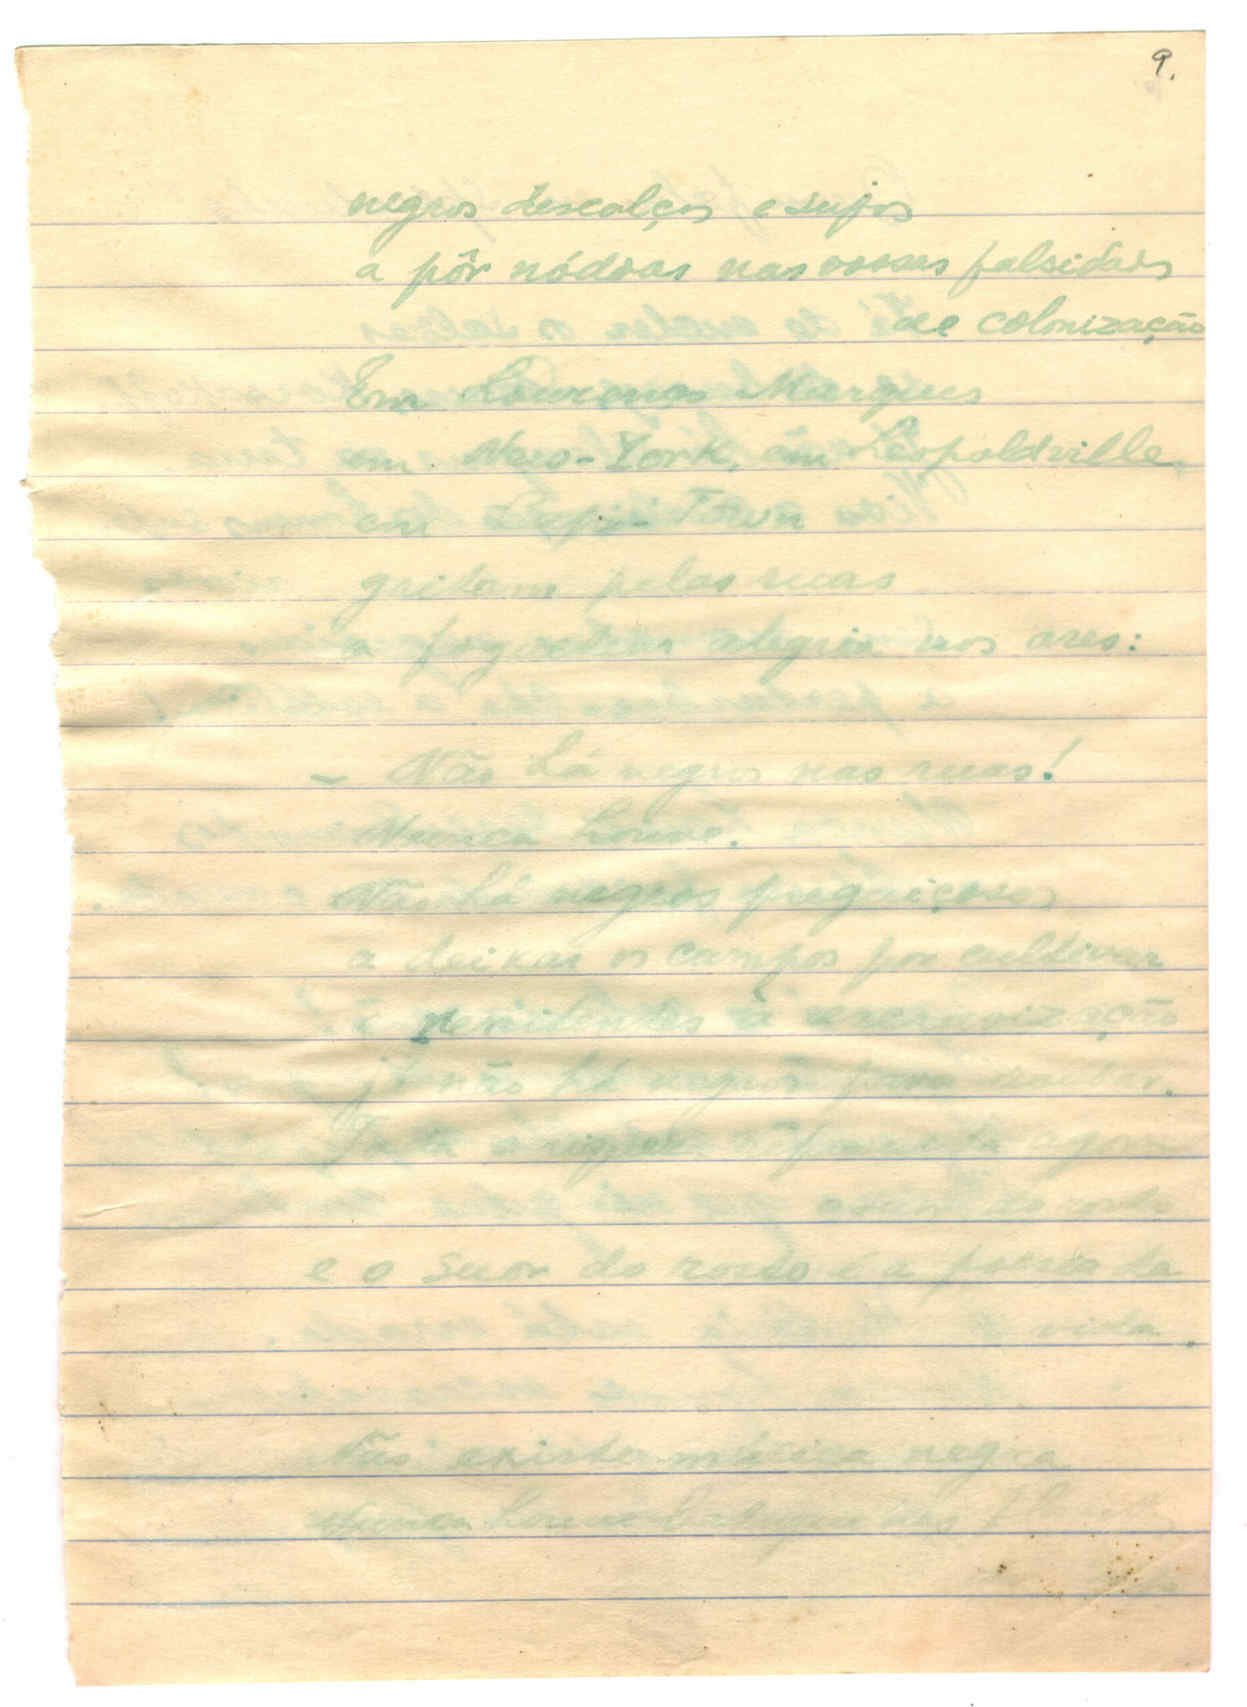 9.
negros descalços e sujos
a pôr nódoas nas vossas falsidades
de colonização
Em Lourenço Marques
em New-York, em Leopoldville,
em Town
gritam pelas ruas
a alegria nos ares:
– Não há negros nas ruas!
Nunca houve.
Não há negros preguiçosos
a deixar os campos por cultivar
e à escravização
já não há negros para
agora
e o suor do rosto é a poesia da
vida.
Não existe música negra
Nunca houve batuques nas